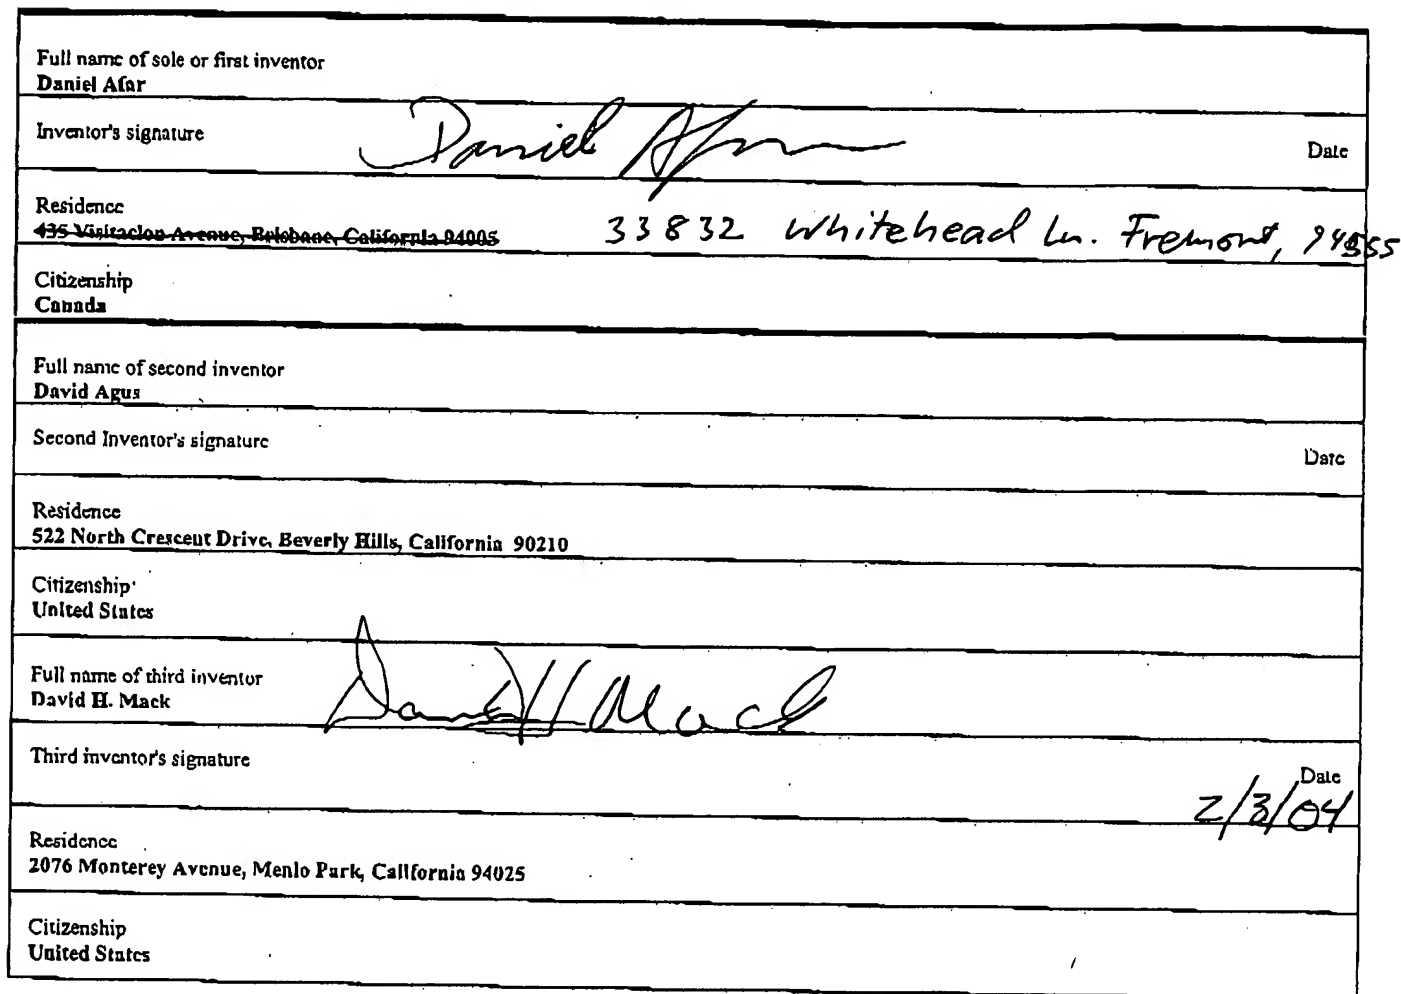 Full name of sole or first inventor
Daniel Afar
Inventor's signature Daniel Afar Date
Residence
435 Visitacion Avenue, Brisbane, California 94005 33832 Whitehead Ln. Fremont, 94555
Citizenship
Canada
Full name of second inventor
David Agus
Second Inventor's signature Date
Residence
522 North Crescent Drive, Beverly Hills, California 90210
Citizenship
United States
Full name of third inventor
David H. Mack David H Mack
Third inventor's signature Date
2/3/04
Residence
2076 Monterey Avenue, Menlo Park, California 94025
Citizenship
United States